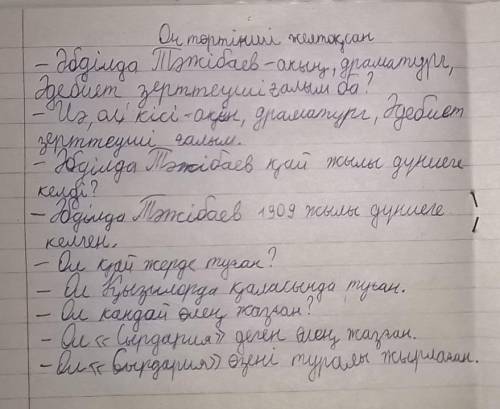 Он төртінші желтоқсан
– Әбділда Тәжібаев -ақын, драматург,
Әдебиет зерттеуші ғалым ба?
– Иә, ол кісі -ақын, драматург, Әдебиет
зерттеуші ғалым.
– Әбділда Тәжібаев қай жылы дүниеге
келді?
– Әбділда Тәжібаев 1909 жылы дүниеге
келген.
– Ол қай жерде туған?
– Ол Қызылорда қаласында туған.
– Ол қандай өлең жазған?
– Ол «Сырдария» деген өлең жазған.
– Ол «Сырдария» өзені туралы жырлаған.